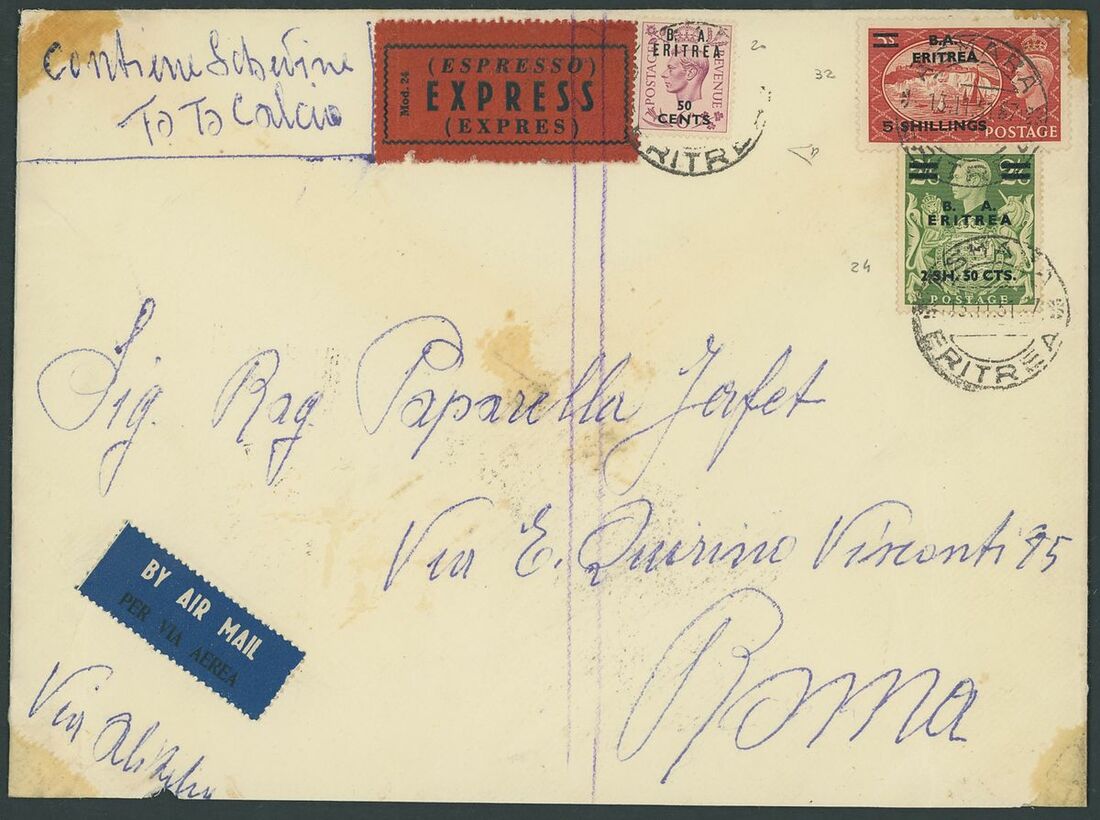 Contiene Schedine
To To Calcio
Mod. 24
(ESPRESSO)
EXPRESS
(EXPRES)
B. A.
ERITREA
POSTAGE
REVENUE
50
CENTS
ERITREA
20
32
B.A.
ERITREA
5 SHILLINGS
POSTAGE
2/6 2/6
B. A.
ERITREA
2 SH. 50 CTS.
POSTAGE
24
13.11.51
ERITREA
Sig. Rag. Paparella Jafet
Via E. Quirino Visconti 95
Roma
BY AIR MAIL
PER VIA AEREA
Via Alitalia